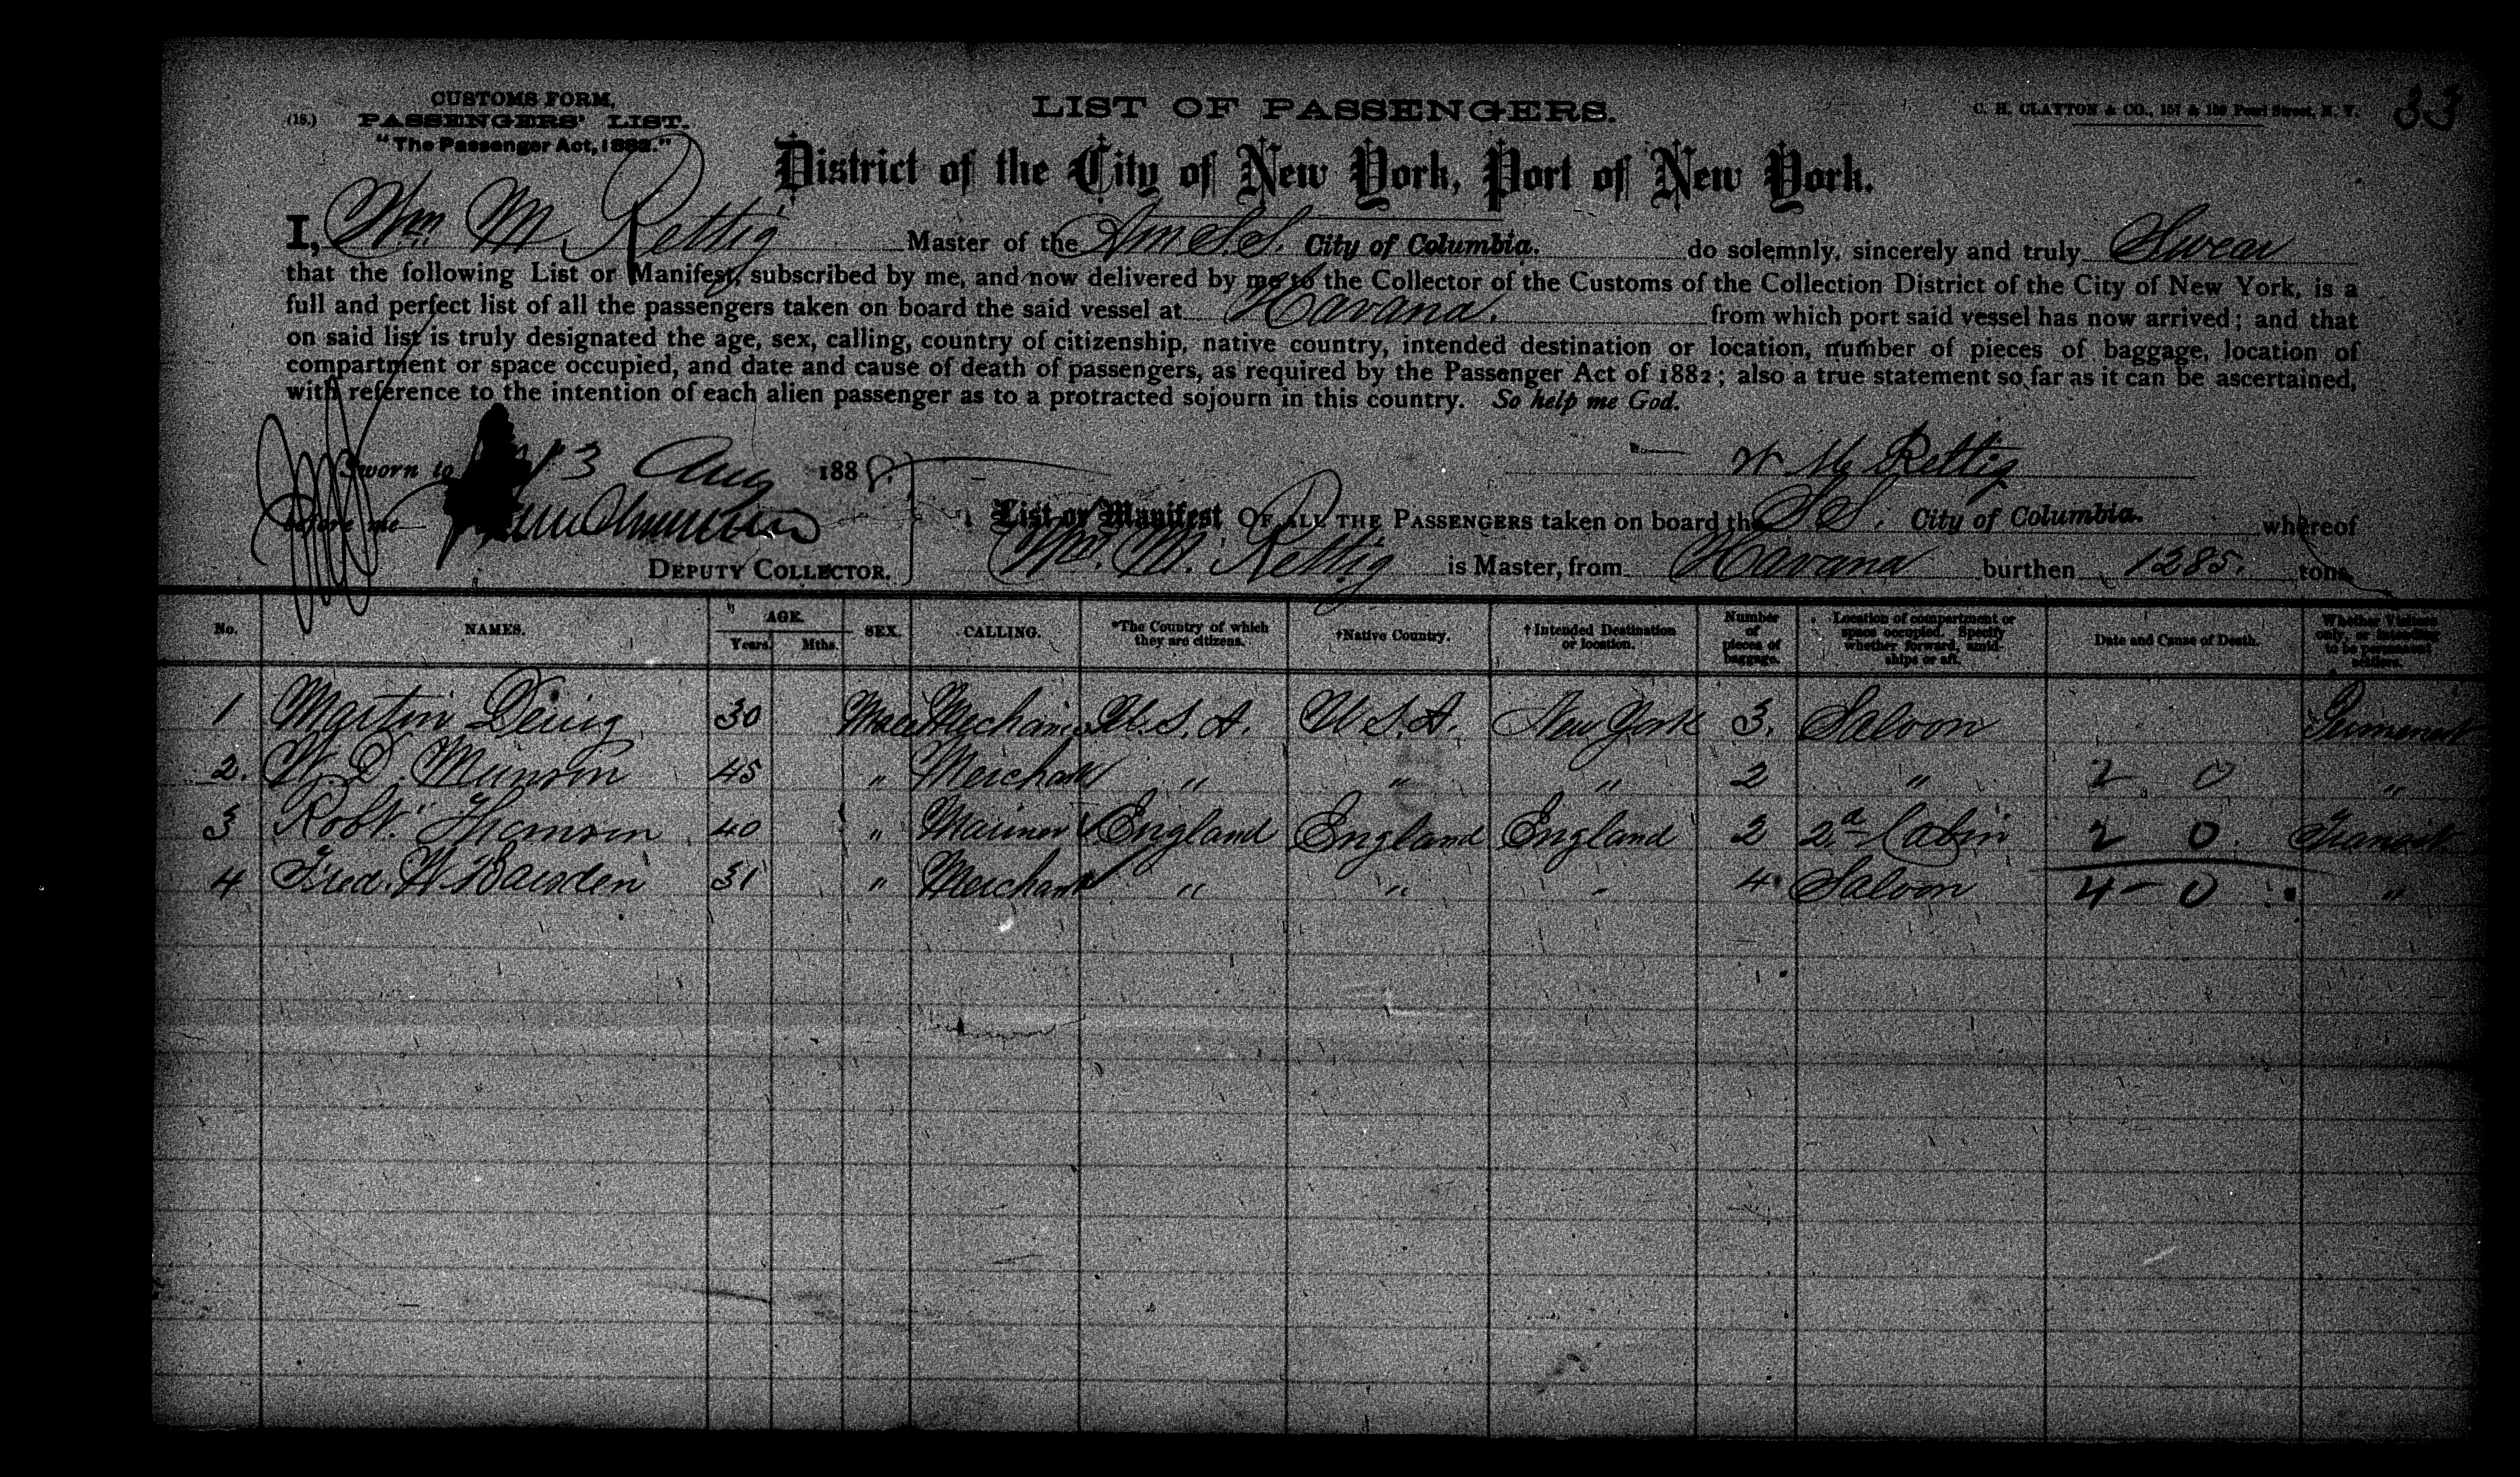 CUSTOMS FORM,
(15.) PASSENGERS' LIST.
"The Passenger Act, 1882."
LIST OF PASSENGERS.
C. H. CLAYTON & CO., 157 & 159 Pearl Street, N. Y.
33
District of the City of New York, Port of New York.
I, Wm M. Rettig Master of the Am S.S. City of Columbia. do solemnly, sincerely and truly Swear
that the following List or Manifest, subscribed by me, and now delivered by me to the Collector of the Customs of the Collection District of the City of New York, is a
full and perfect list of all the passengers taken on board the said vessel at Havana. from which port said vessel has now arrived; and that
on said list is truly designated the age, sex, calling, country of citizenship, native country, intended destination or location, number of pieces of baggage, location of
compartment or space occupied, and date and cause of death of passengers, as required by the Passenger Act of 1882; also a true statement so far as it can be ascertained,
with reference to the intention of each alien passenger as to a protracted sojourn in this country. So help me God.
Sworn to 13 Aug 1888.
W M Rettig
before me
DEPUTY COLLECTOR.
List or Manifest OF ALL THE PASSENGERS taken on board the S.S. City of Columbia. whereof
Wm. M. Rettig is Master, from Havana burthen 1285. tons
No. NAMES. AGE. Years. Mths. SEX. CALLING. *The Country of which they are citizens. †Native Country. †Intended Destination or location. Number of pieces of baggage. Location of compartment or space occupied. Specify whether forward, amidships or aft. Date and Cause of Death. Whether Visitors only, or intending to be permanent settlers.
1 Martin 30 Male Mechanic U.S.A. U.S.A. New York 3. Saloon
2. W. D. Munson 45 " Merchant " " " 2 " 2 0 "
3 Robt. Thomson 40 " Mariner England England England 2 2d Cabin 2 0. Transit
4 Fred. W. Barsden 31 " Merchant " " " 4 Saloon 4 - 0 "